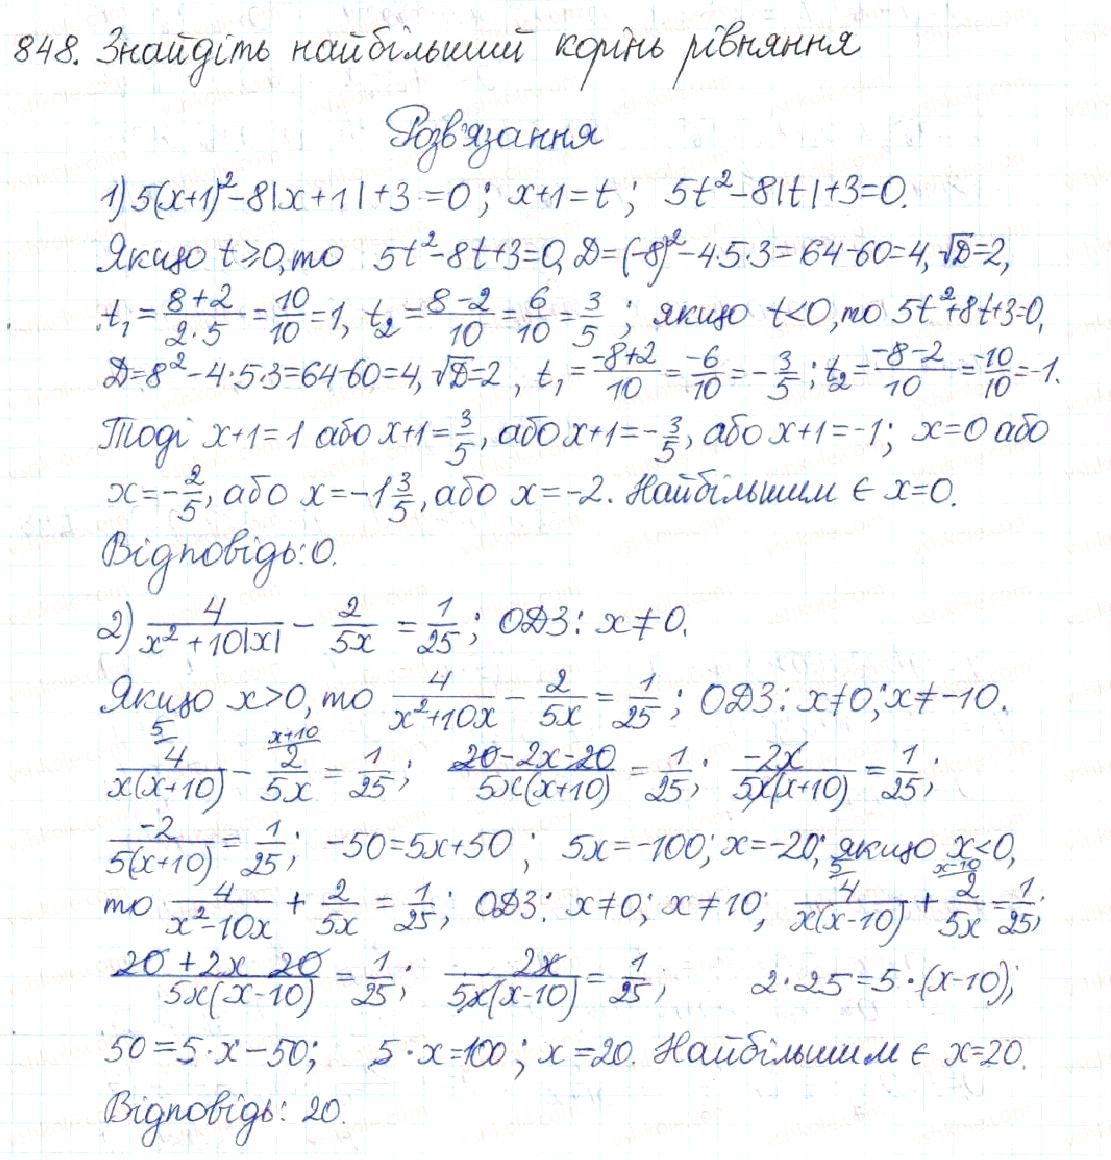 848. Знайдіть найбільший корінь рівняння
Розв'язання
1) 5(x+1)²-8|x+1|+3=0; x+1=t; 5t²-8|t|+3=0.
Якщо t≥0, то 5t²-8t+3=0, D=(-8)²-4·5·3=64-60=4, √D=2,
t₁=(8+2)/(2·5)=10/10=1, t₂=(8-2)/10=6/10=3/5; якщо t<0, то 5t²+8t+3=0,
D=8²-4·5·3=64-60=4, √D=2, t₁=(-8+2)/10=-6/10=-3/5; t₂=(-8-2)/10=-10/10=-1.
Тоді x+1=1 або x+1=3/5, або x+1=-3/5, або x+1=-1; x=0 або
x=-2/5, або x=-1 3/5, або x=-2. Найбільшим є x=0.
Відповідь: 0.
2) 4/(x²+10|x|) - 2/(5x) = 1/25; ОДЗ: x≠0.
Якщо x>0, то 4/(x²+10x) - 2/(5x) = 1/25; ОДЗ: x≠0; x≠-10.
5/ 4/(x(x+10)) - x+10/ 2/(5x) = 1/25; (20-2x-20)/(5x(x+10)) = 1/25; -2x/(5x(x+10)) = 1/25;
-2/(5(x+10)) = 1/25; -50=5x+50; 5x=-100; x=-20; якщо x<0,
то 4/(x²-10x) + 2/(5x) = 1/25; ОДЗ: x≠0; x≠10; 5/ 4/(x(x-10)) + x-10/ 2/(5x) = 1/25;
(20+2x 20)/(5x(x-10)) = 1/25; 2x/(5x(x-10)) = 1/25; 2·25=5·(x-10);
50=5·x-50; 5·x=100; x=20. Найбільшим є x=20.
Відповідь: 20.